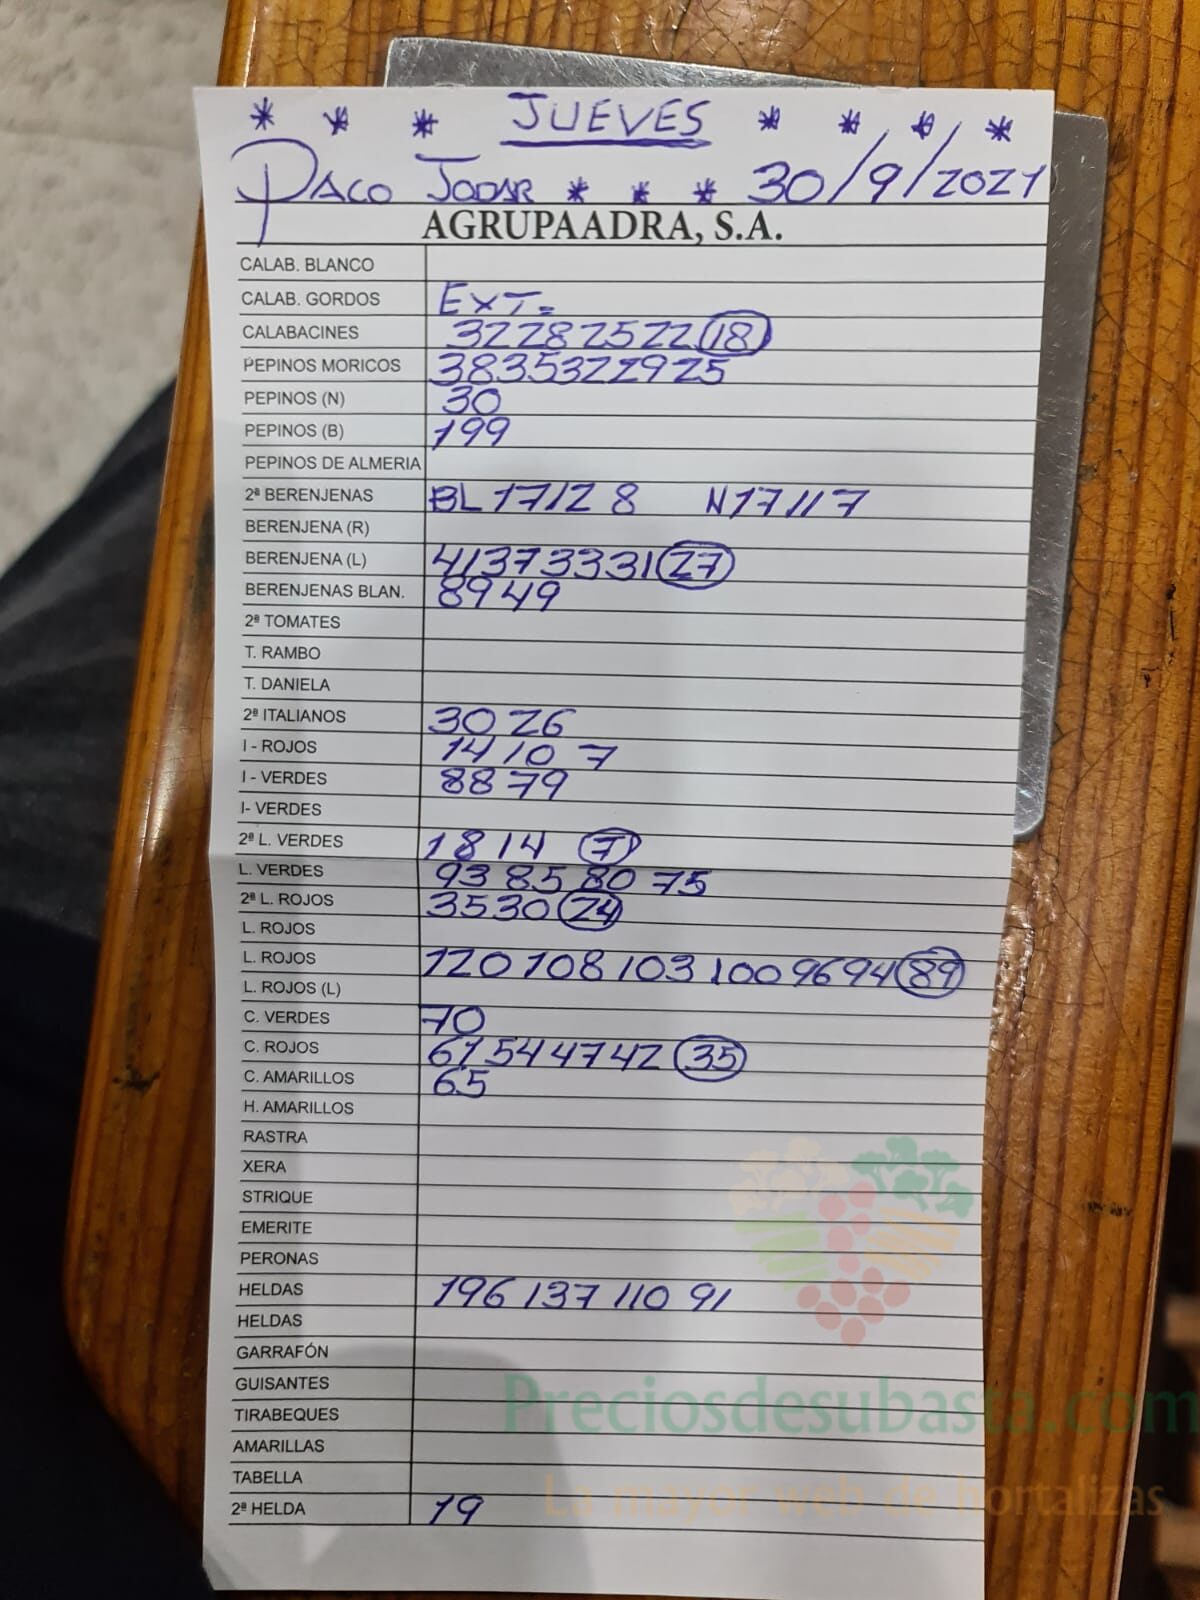 * * * JUEVES * * * *
PACO JODAR * * * 30/9/2021
AGRUPAADRA, S.A.
CALAB. BLANCO
CALAB. GORDOS EXT.
CALABACINES 32 28 25 22 18
PEPINOS MORICOS 38 35 32 29 25
PEPINOS (N) 30
PEPINOS (B) 199
PEPINOS DE ALMERIA
2ª BERENJENAS BL 17 12 8 N 17 11 7
BERENJENA (R)
BERENJENA (L) 41 37 33 31 27
BERENJENAS BLAN. 89 49
2ª TOMATES
T. RAMBO
T. DANIELA
2ª ITALIANOS 30 26
I - ROJOS 14 10 7
I - VERDES 88 79
I- VERDES
2ª L. VERDES 18 14 7
L. VERDES 93 85 80 75
2ª L. ROJOS 35 30 24
L. ROJOS
L. ROJOS 120 108 103 100 96 94 89
L. ROJOS (L)
C. VERDES 70
C. ROJOS 61 54 47 42 35
C. AMARILLOS 65
H. AMARILLOS
RASTRA
XERA
STRIQUE
EMERITE
PERONAS
HELDAS 196 137 110 91
HELDAS
GARRAFÓN
GUISANTES
TIRABEQUES
Preciosdesubasta.com
AMARILLAS
TABELLA
La mayor web de hortalizas
2ª HELDA 19